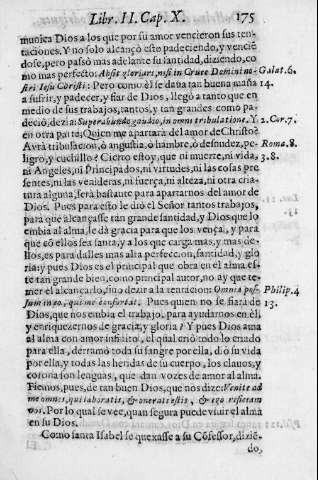 Libr. II. Cap. X. 175
munica Dios a los que por su amor vencieron sus ten-
taciones. Y no solo alcançò esto padeciendo, y vencié
dose, pero passò mas adelante su santidad, diziendo, co
mo mas perfecto: Absit gloriari, nisi in Cruce Domini no- Galat. 6.
stri Iesu Christi: Pero como èl se daua tan buena maña 14.
a sufrir, y padecer, y fiar de Dios, llegò a tanto que en
medio de sus trabajos, tantos, y tan grandes como pa-
deciò, dezia: Superabundo gaudio, in omni tribulatione. Y 2. Cor. 7.
en otra parte; Quien me apartarà del amor de Christo?
Avrà tribulacion, ò angustia, ò hambre, ò desnudez, pe- Roma. 8.
ligro, y cuchillo? Cierto estoy, que ni muerte, ni vida, 3.8.
ni Angeles, ni Principados, ni virtudes, ni las cosas pre
sentes, ni las venideras, ni fuerça, ni alteza, ni otra cria-
tura alguna, serà bastante para apartarnos del amor de
Dios. Pues para esto le diò el Señor tantos trabajos,
para que alcançasse tan grande santidad, y Dios que lo
embia al alma, le dà gracia para que los vença, y para
que cõ ellos sea santa, y a los que carga mas, y mas de-
llos, es para dalles mas alta perfeccion, santidad, y glo
ria: y pues Dios es el principal que obra en el alma es-
te tan grande bien, como principal autor, no ay que te-
mer el alcançarlo, sino dezir a la tentacion: Omnia pos- Philip. 4
sum in eo, qui me confortat. Pues quien no se fiarà de 13.
Dios, que nos embia el trabajo, para ayudarnos en èl,
y enriquezernos de gracia, y gloria? Y pues Dios ama
al alma con amor infinito, el qual criò todo lo criado
para ella, derramò toda su sangre por ella, diò su vida
por ella, y todas las heridas de su cuerpo, los clauos, y
corona son lenguas, que dan vozes de amor al alma.
Fiemos, pues, de tan buen Dios, que nos dize: Venite ad
me omnes, qui laboratis, & onerati estis, & ego reficiam
vos. Por lo qual se vee, quan segura puede viuir el alma
en su Dios.
Como santa Isabel se quexasse a su Cõfessor, dizié-
do,